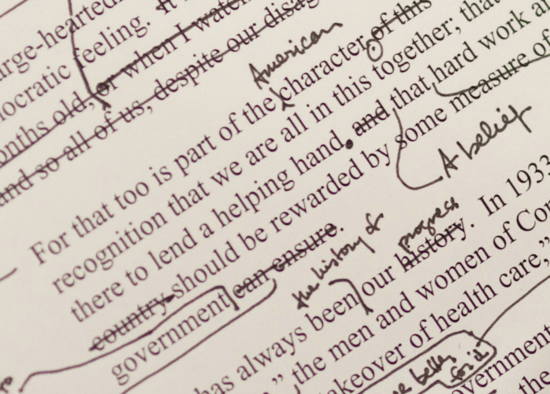 large-hearted It
democratic feeling.
months old, or when I watch
and so all of us, despite our disag
American
For that too is part of the character of this
recognition that we are all in this together; that
there to lend a helping hand. and that hard work a
country should be rewarded by some measure of
A belief
government can ensure.
the history & progress
has always been our history. In 1933
," the men and women of Con
takeover of health care,"
better
government
the